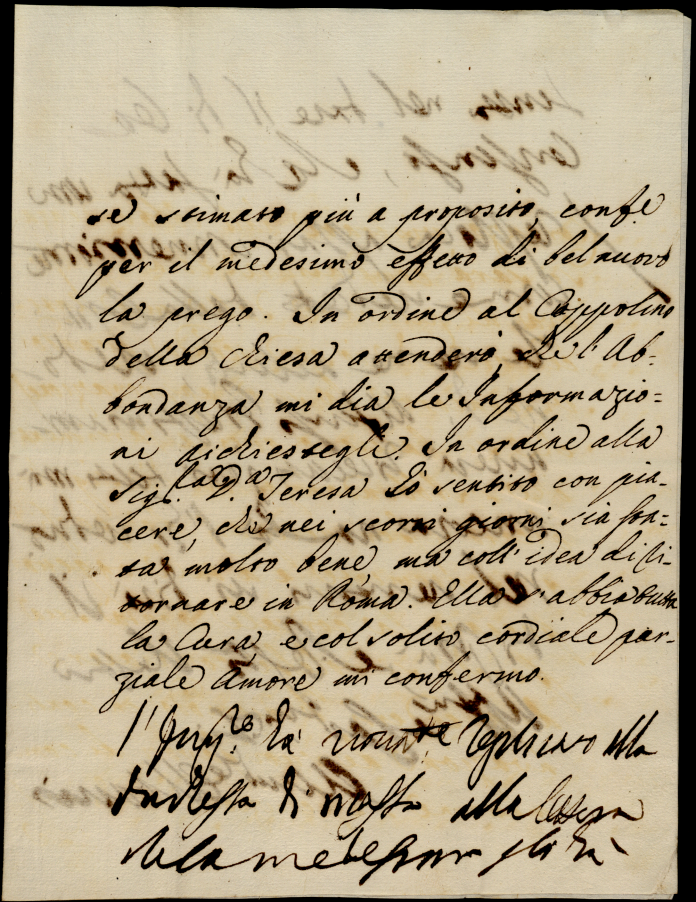 se stimato più a proposito, conf.e
per il medesimo effetto di bel nuovo
la prego. In ordine al Coppolino
della Chiesa attenderò, che l'Ab-
bondanza mi dia le Informazio=
ni richiestegli. In ordine alla
Sig.ra D.a Teresa hò sentito con pia-
cere, che nei scorsi giorni sia sta-
ta molto bene, ma coll'idea di ri-
tornare in Roma. Ella s'abbia tutta
la Cura, e col solito cordiale par-
ziale Amore mi confermo.
replicato alla
Duchessa di Massa alla lettera
che la medesima